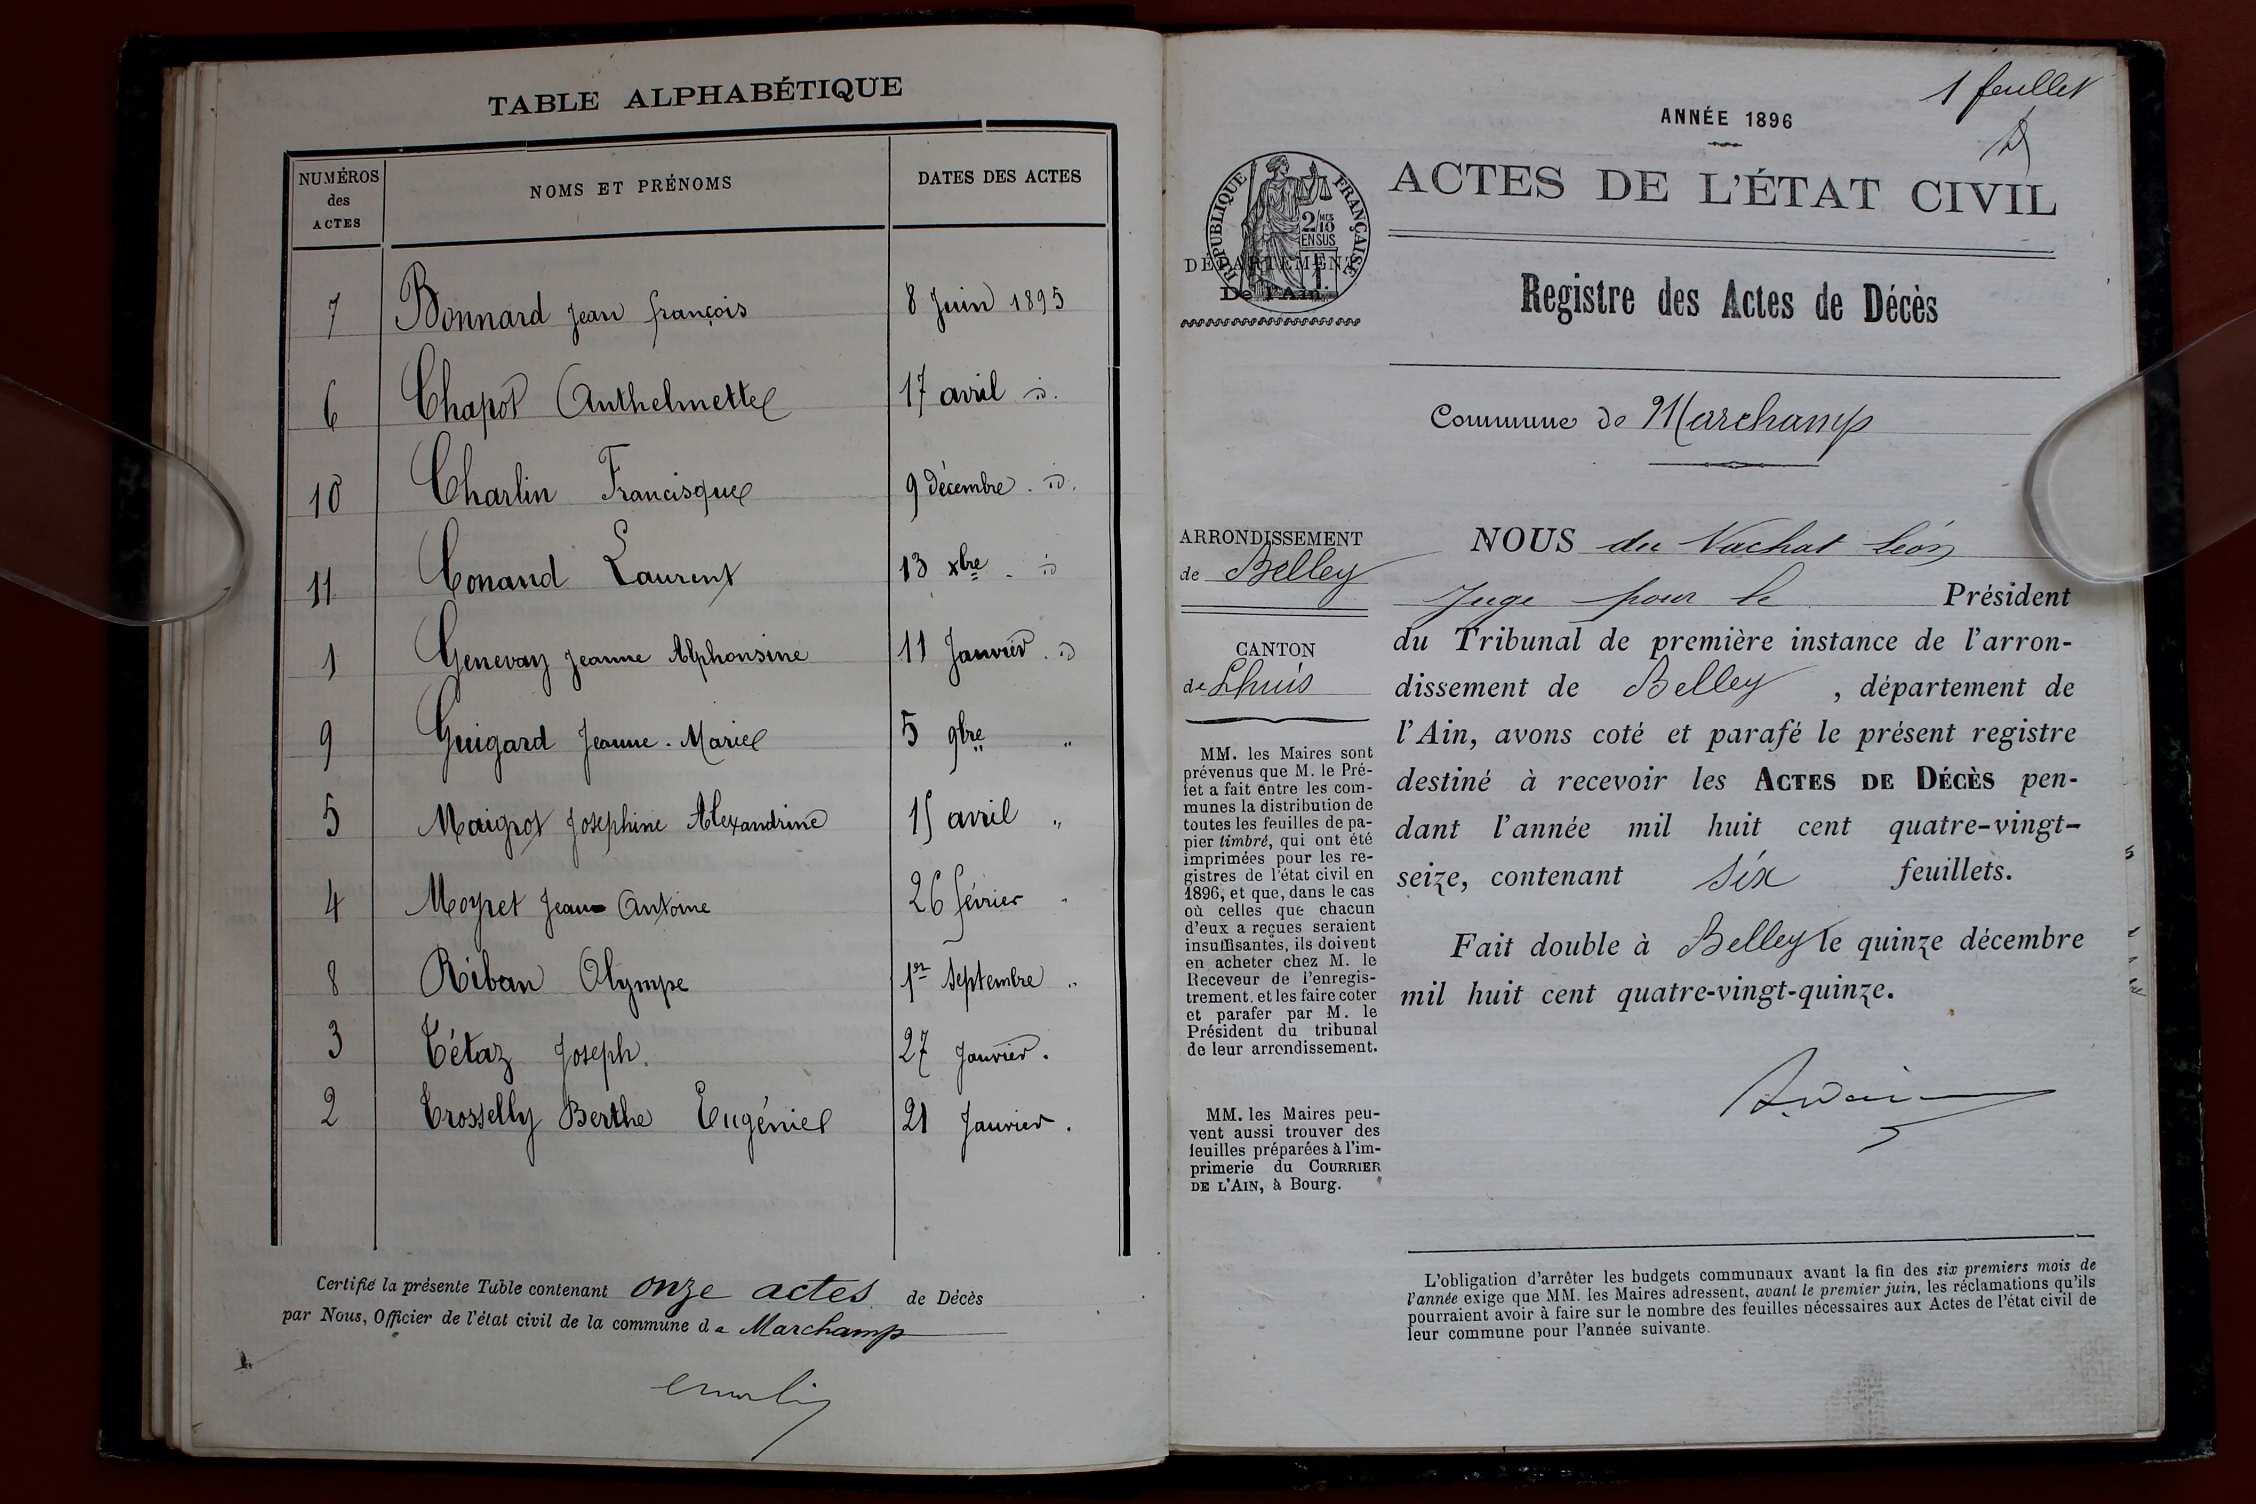 TABLE ALPHABÉTIQUE
NUMÉROS des ACTES
NOMS ET PRÉNOMS
DATES DES ACTES
7 Bonnard Jean françois 8 Juin 1895
6 Chapot Anthelmette 17 avril id.
10 Charlin Francisque 9 décembre . id.
11 Conand Laurent 13 xbre . id
1 Genevay Jeanne Alphonsine 11 Janvier . id
9 Guigard Jeanne . Marie 5 9bre "
5 Maigrot Joséphine Alexandrine 15 avril "
4 Moyret Jean Antoine 26 février "
8 Riban Olympe 1er Septembre "
3 Tétaz Joseph. 27 Janvier .
2 Trosselly Berthe Eugénie 21 Janvier .
Certifié la présente Table contenant onze actes de Décès
par Nous, Officier de l'état civil de la commune de Marchamp
1 feuillet
ANNÉE 1896
RÉPUBLIQUE FRANÇAISE
2/10 MES
EN SUS
ACTES DE L'ÉTAT CIVIL
DÉPARTEMENT
De l'Ain.
Registre des Actes de Décès
Commune de Marchamp
ARRONDISSEMENT
de Belley
CANTON
de Lhuis
MM. les Maires sont
prévenus que M. le Pré-
fet a fait entre les com-
munes la distribution de
toutes les feuilles de pa-
pier timbré, qui ont été
imprimées pour les re-
gistres de l'état civil en
1896, et que, dans le cas
où celles que chacun
d'eux a reçues seraient
insuffisantes, ils doivent
en acheter chez M. le
Receveur de l'enregis-
trement. et les faire coter
et parafer par M. le
Président du tribunal
de leur arrondissement.
MM. les Maires peu-
vent aussi trouver des
feuilles préparées à l'im-
primerie du COURRIER
DE L'AIN, à Bourg.
NOUS du Vachat Léon
Juge pour le Président
du Tribunal de première instance de l'arron-
dissement de Belley , département de
l'Ain, avons coté et parafé le présent registre
destiné à recevoir les ACTES DE DÉCÈS pen-
dant l'année mil huit cent quatre-vingt-
seize, contenant six feuillets.
Fait double à Belley le quinze décembre
mil huit cent quatre-vingt-quinze.
L'obligation d'arrêter les budgets communaux avant la fin des six premiers mois de
l'année exige que MM. les Maires adressent, avant le premier juin, les réclamations qu'ils
pourraient avoir à faire sur le nombre des feuilles nécessaires aux Actes de l'état civil de
leur commune pour l'année suivante.